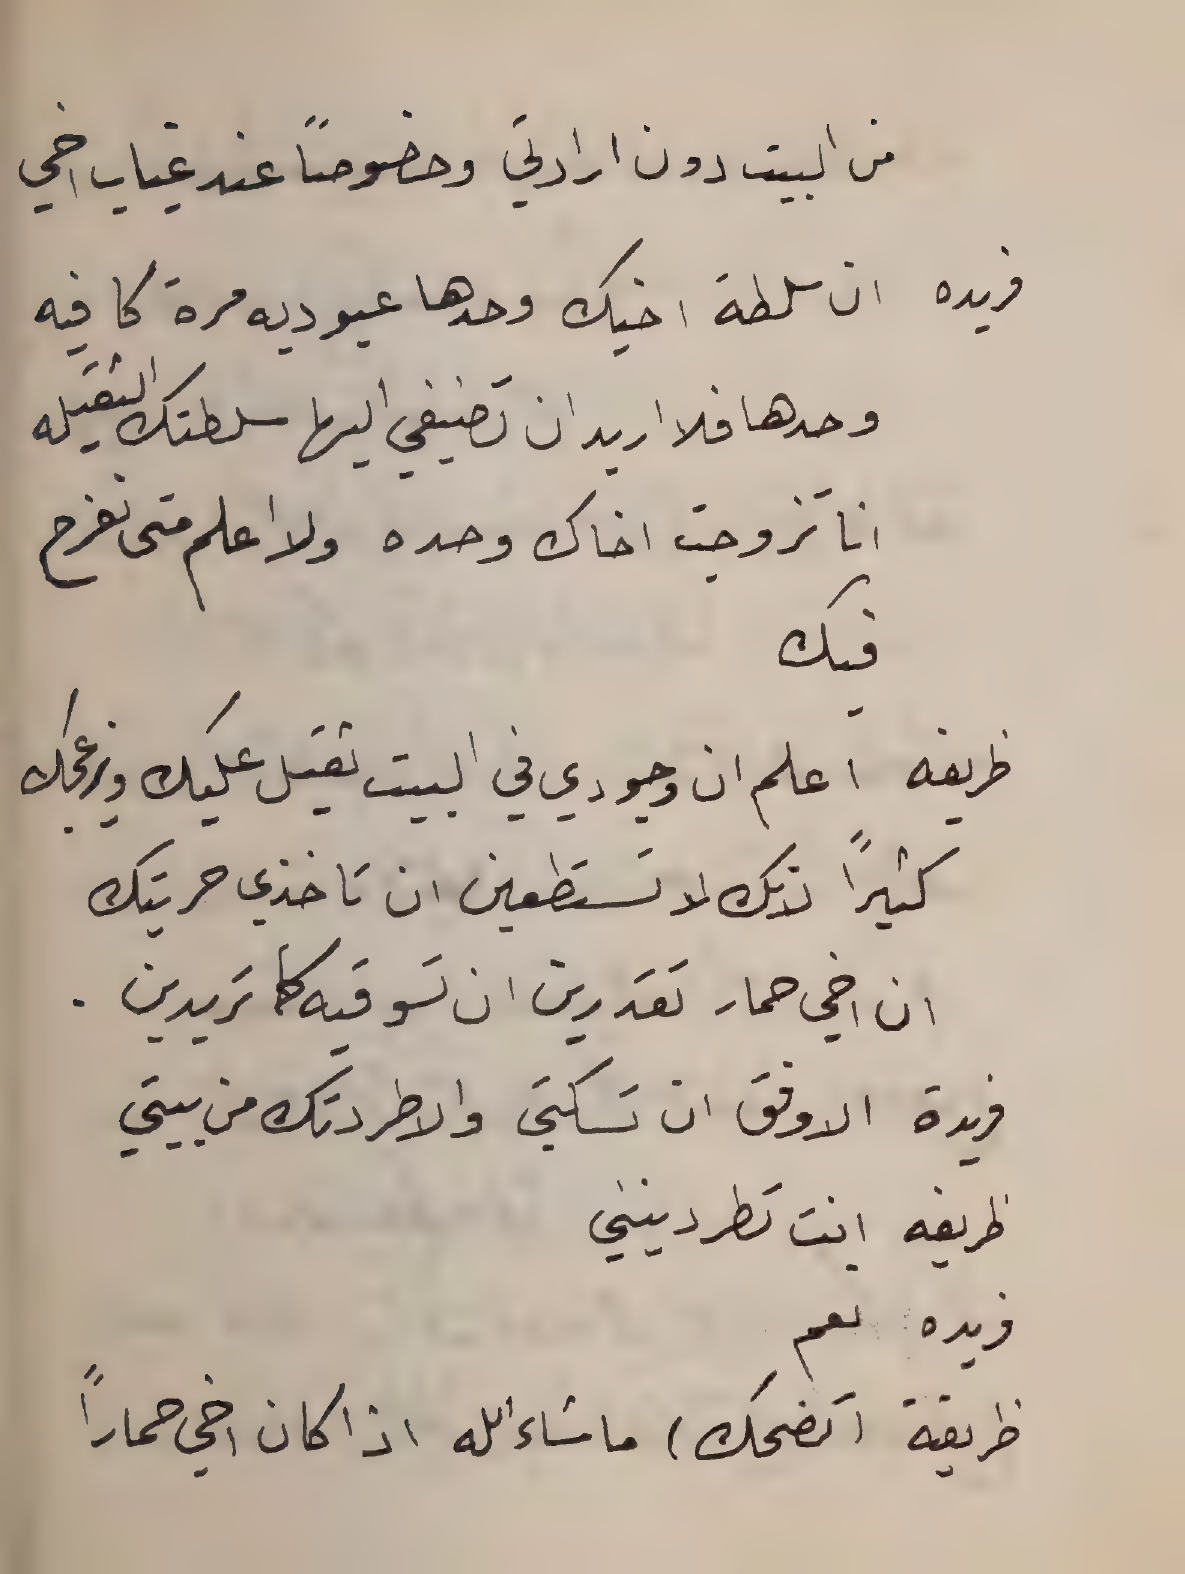 من البيت دون ارادتي وخصوصاً عند غياب اخي
فريده ان سلطة اخيك وحدها عبوديه مرة كافيه
وحدها فلا اريد ان تضيفي اليها سلطتك الثقيله
انا تزوجت اخاك وحده ولا اعلم متى تفرج
فيك
ظريفه اعلم ان وجودي في البيت ثقيل عليك ويزعجك
كثيراً لذلك لا تستطعين ان تاخذي حريتك
ان اخي حمار تقدرين ان تسوقيه كما تريدين .
فريدة الاوفق ان تسكتي والا طردتك من بيتي
ظريفه انت تطردينني
فريده نعم
ظريفة (تضحك) ماشاء الله اذا كان اخي حماراً